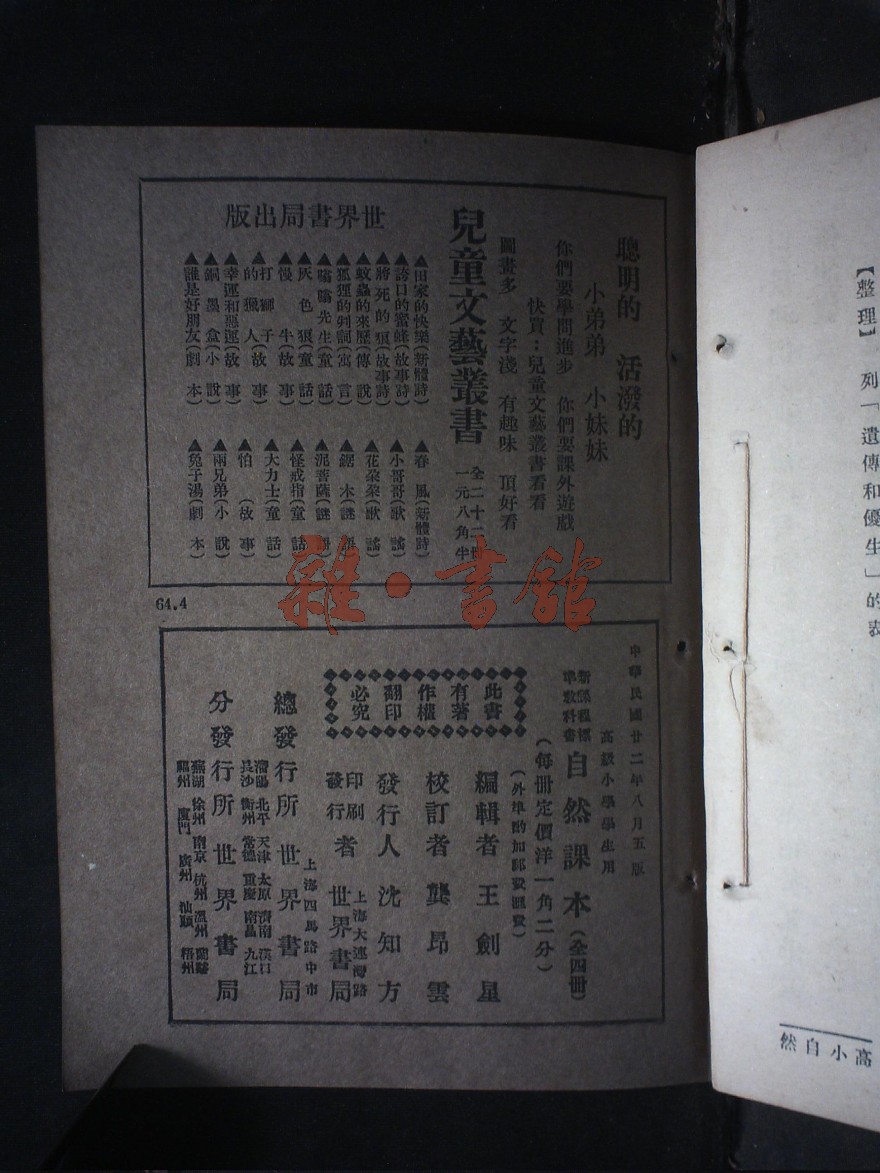 聰明的 活潑的
小弟弟 小妹妹
你們要學問進步 你們要課外遊戲
快買：兒童文藝叢書看看
圖畫多 文字淺 有趣味 頂好看
兒童文藝叢書
全二十二冊
一元八角半
世界書局出版
▲田家的快樂(新體詩)
▲誇口的蜜蜂(故事詩)
▲將死的狼(故事詩)
▲蚊蟲的來歷(傳說)
▲狐狸的判詞(寓言)
▲嘻嘻先生(童話)
▲灰色狼(童話)
▲慢牛(故事)
▲打獅子
的獵人(故事)
▲幸運和惡運(故事)
▲銅墨盒(小說)
▲誰是好朋友(劇本)
▲春風(新體詩)
▲小哥哥(歌謠)
▲花朵朵(歌謠)
▲鋸木(謎語)
▲泥菩薩(謎語)
▲怪戒指(童話)
▲大力士(童話)
▲怕(故事)
▲兩兄弟(小說)
▲兔子湯(劇本)
64.4
中華民國廿二年八月五版
高級小學學生用
新課程標
準教科書
自然課本(全四冊)
(每冊定價洋一角二分)
(外埠酌加郵費匯費)
此書
有著
作權
翻印
必究
編輯者 王劍星
校訂者 龔昂雲
發行人 沈知方
上海大連灣路
印刷
發行
者 世界書局
上海四馬路中市
總發行所 世界書局
瀋陽 北平 天津 太原 濟南 漢口
長沙 衡州 常德 重慶 南昌 九江
分發行所 世界書局
蕪湖 徐州 南京 杭州 溫州 蘭谿
福州 廈門 廣州 汕頭 梧州
雜·書館
【整理】 列「遺傳和優生」的表
高小自然